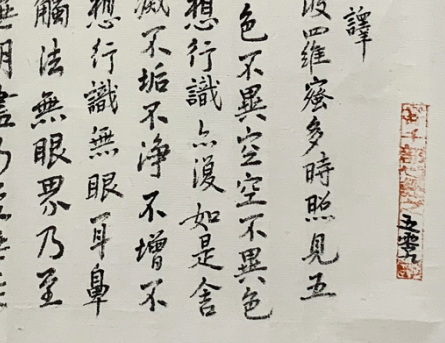 五零九
譯
波羅蜜多時照見五
色不異空空不異色
想行識亦復如是舍
滅不垢不淨不增不
想行識無眼耳鼻
觸法無眼界乃至
明盡乃至無